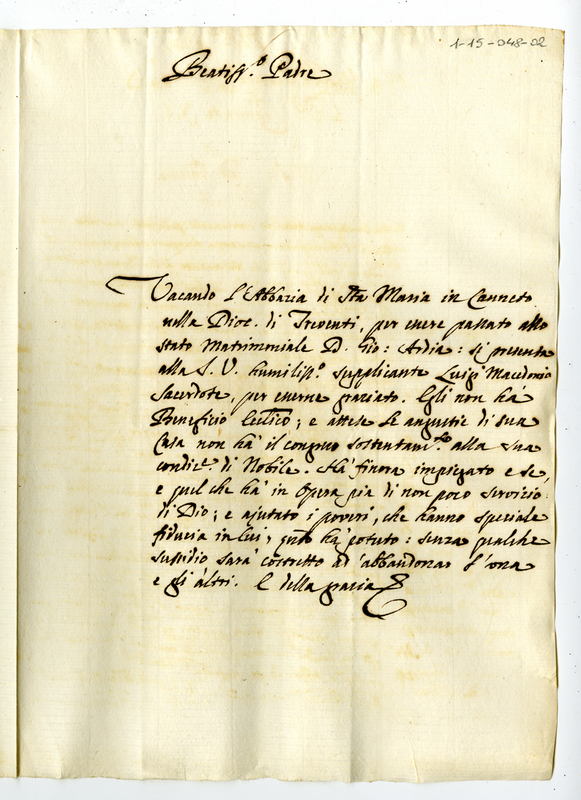 1-15-048-02
Beatiss.º Padre
Vacando l'Abbazia di Sta Maria in Canneto
nella Dioc. di Treventi, per essere passato allo
stato Matrimoniale D. Gio: Ardia: si presenta
alla S. V. humiliss.º supplicante Luigi Macedonio
Sacerdote, per esserne graziato. Egli non hà
Beneficio Ecclico; e attese le angustie di sua
Casa non hà il congruo sostentam.to alla sua
condiz.e di Nobile. Hà finora impiegato e se,
e quel che hà in Opera pia di non poco servizio
di Dio; e ajutato i poveri, che hanno speciale
fiducia in lui, qnto hà potuto: senza qualche
sussidio sarà costretto ad abbandonar l'una
e gli àltri. E della grazia